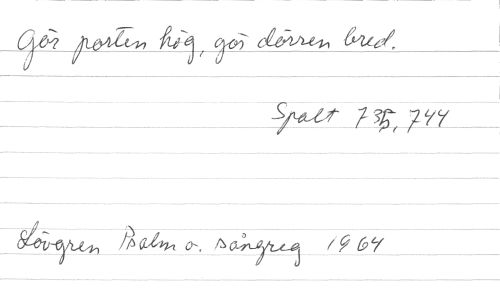 Gör porten hög, gör dörren bred.
Spalt 735, 744
Lövgren Psalm o. sångreg 1964